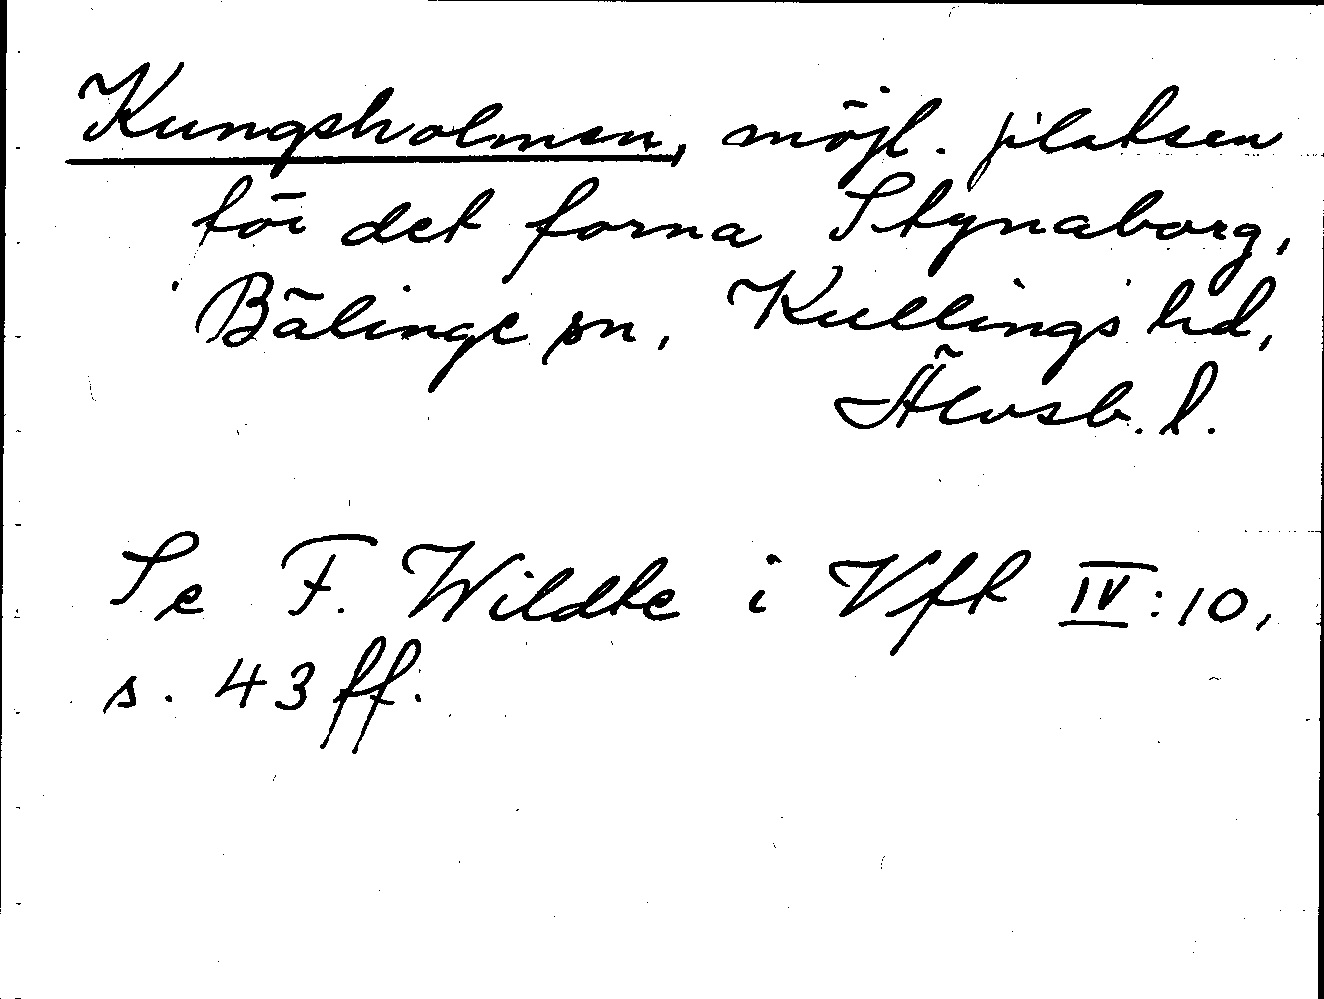 Kungsholmen, möjl. platsen
för det forna Stynaborg,
Bälinge sn, Kullings hd,
Älvsb. l.
Se F. Wildte i Vft IV:10,
s. 43 ff.